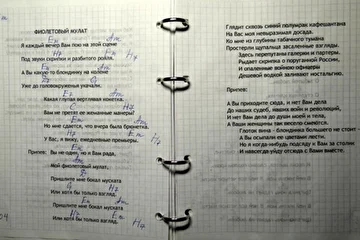 ФИОЛЕТОВЫЙ МУЛАТ
Em Am
Я каждый вечер Вам пою на этой сцене
H7 Em H7
Под звуки скрипки и разбитого рояля.
Em Am
А Вы какую-то блондинку на колене
Уже до головокруженья укачали.
Em Am
Какая глупая вертлявая кокетка.
C H7
Вам не претят ее жеманные манеры?
Em Am
Но мне сдается, что вчера была брюнетка.
H7 Em H7
У Вас, я вижу, ежедневные премьеры.
Em Am
Припев: Вы не один, но я Вам рада,
H7 Em
Мой фиолетовый мулат.
Пришлите мне бокал муската
H7
Или хотя бы только взгляд.
Em Am
Пришлите мне бокал муската
H7 Em H7
Или хотя бы только взгляд.
Глядит сквозь синий полумрак кафешантана
На Вас моя невыразимая досада.
Ко мне из глубины табачного тумана
Простерли щупальца засаленные взгляды.
Здесь перепутаны галерки и партеры.
Рыдает скрипка о поруганной России,
И опаленные войною офицеры
Дешевой водкой заливают ностальгию.
Припев:
А Вы приходите сюда, и нет Вам дела
До наших судеб, наших войн и революций,
И нет Вам дела до души моей и тела,
А Ваши женщины так весело смеются.
Глоток вина - блондинка больше не стонет
А Вы осыпали ее цветами лести.
Но я когда-нибудь подсяду к Вам за столик
И навсегда уйду отсюда с Вами вместе.